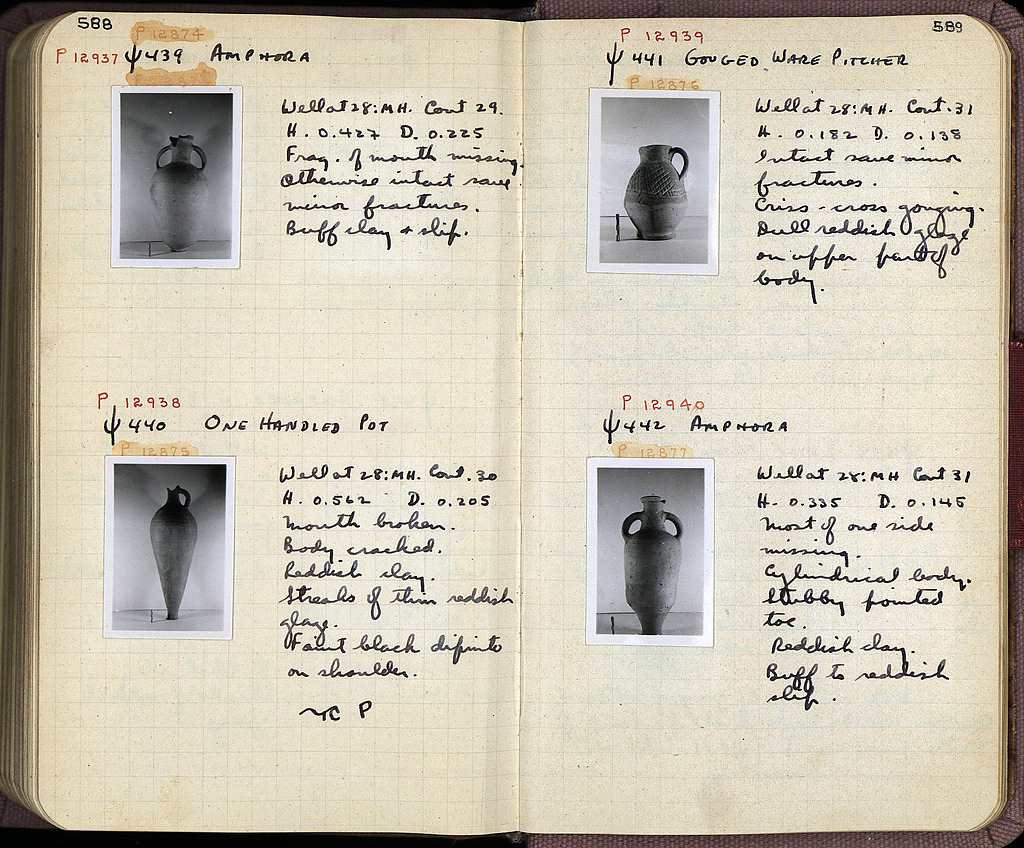 588
P 12874
P 12937 Ψ 439 AMPHORA
Well at 28:MH. Cont 29.
H. 0.427 D. 0.225
Frag. of mouth missing.
Otherwise intact save
minor fractures.
Buff clay + slip.
P 12938
Ψ 440 ONE HANDLED POT
P 12875
Well at 28:MH. Cont. 30
H. 0.562 D. 0.205
Mouth broken.
Body cracked.
Reddish clay.
Streaks of thin reddish
glaze.
Faint black dipinto
on shoulder.
P
589
P 12939
Ψ 441 GOUGED WARE PITCHER
P 12876
Well at 28:MH. Cont. 31
H. 0.182 D. 0.138
Intact save minor
fractures.
Criss-cross gouging.
Dull reddish glaze
on upper part of
body.
P 12940
Ψ 442 AMPHORA
P 12877
Well at 28:MH Cont 31
H. 0.335 D. 0.145
Most of one side
missing.
Cylindrical body.
Stubby pointed
toe.
Reddish clay.
Buff to reddish
slip.